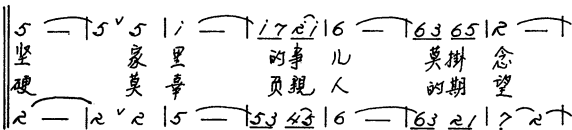 5 — | 5 ˅ 5 | i — | i 7 2 i | 6 — | 6 3 6 5 | 2 — |
坚 家里 的事儿 莫掛念
硬 莫辜 负親人 的期望
2 — | 2 ˅ 2 | 5 — | 5 3 4 5 | 6 — | 6 3 2 1 | 7 2 — |